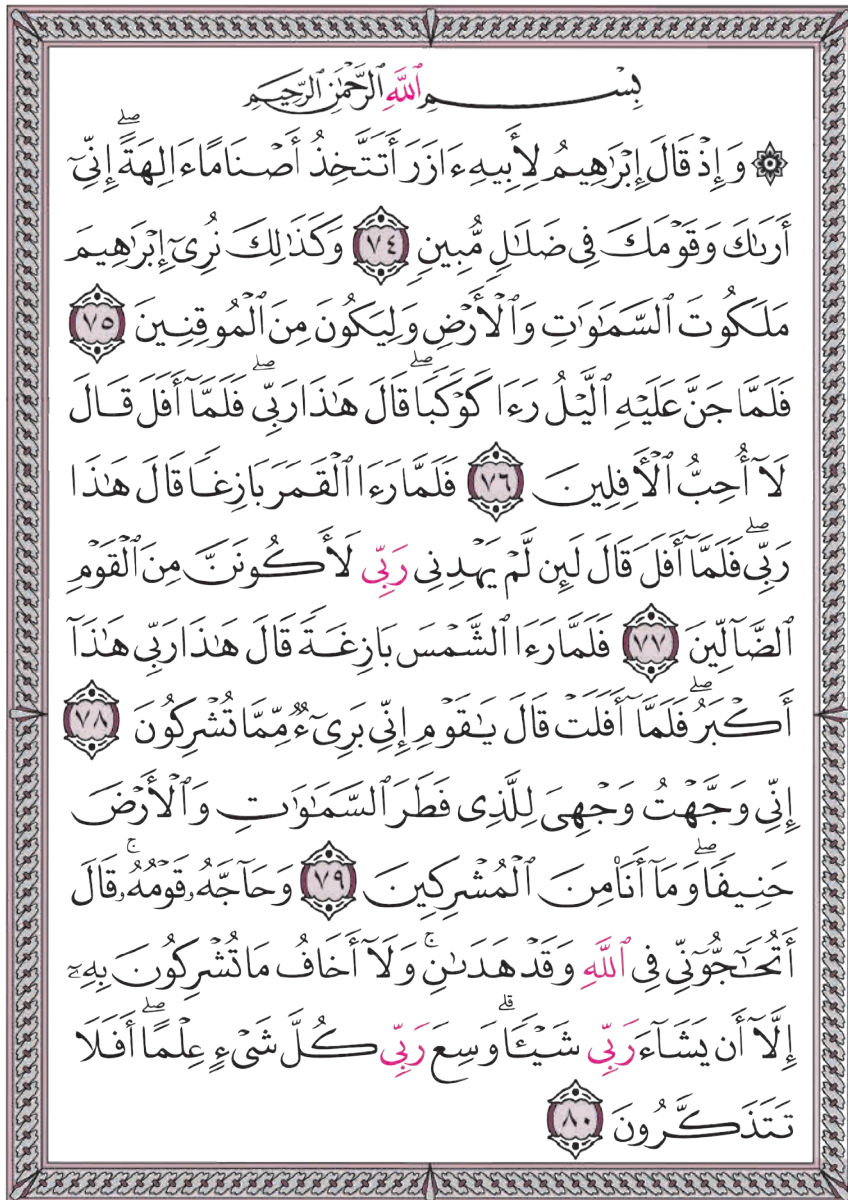 بِسْمِ ٱللَّهِ ٱلرَّحْمَٰنِ ٱلرَّحِيمِ
۞ وَإِذْ قَالَ إِبْرَٰهِيمُ لِأَبِيهِ ءَازَرَ أَتَتَّخِذُ أَصْنَامًا ءَالِهَةً ۖ إِنِّىٓ
أَرَىٰكَ وَقَوْمَكَ فِى ضَلَٰلٍ مُّبِينٍ ٧٤ وَكَذَٰلِكَ نُرِىٓ إِبْرَٰهِيمَ
مَلَكُوتَ ٱلسَّمَٰوَٰتِ وَٱلْأَرْضِ وَلِيَكُونَ مِنَ ٱلْمُوقِنِينَ ٧٥
فَلَمَّا جَنَّ عَلَيْهِ ٱلَّيْلُ رَءَا كَوْكَبًا ۖ قَالَ هَٰذَا رَبِّى ۖ فَلَمَّآ أَفَلَ قَالَ
لَآ أُحِبُّ ٱلْأَفِلِينَ ٧٦ فَلَمَّا رَءَا ٱلْقَمَرَ بَازِغًا قَالَ هَٰذَا
رَبِّى ۖ فَلَمَّآ أَفَلَ قَالَ لَئِن لَّمْ يَهْدِنِى رَبِّى لَأَكُونَنَّ مِنَ ٱلْقَوْمِ
ٱلضَّآلِّينَ ٧٧ فَلَمَّا رَءَا ٱلشَّمْسَ بَازِغَةً قَالَ هَٰذَا رَبِّى هَٰذَآ
أَكْبَرُ ۖ فَلَمَّآ أَفَلَتْ قَالَ يَٰقَوْمِ إِنِّى بَرِىٓءٌ مِّمَّا تُشْرِكُونَ ٧٨
إِنِّى وَجَّهْتُ وَجْهِىَ لِلَّذِى فَطَرَ ٱلسَّمَٰوَٰتِ وَٱلْأَرْضَ
حَنِيفًا ۖ وَمَآ أَنَا۠ مِنَ ٱلْمُشْرِكِينَ ٧٩ وَحَآجَّهُۥ قَوْمُهُۥ ۚ قَالَ
أَتُحَٰٓجُّوٓنِّى فِى ٱللَّهِ وَقَدْ هَدَىٰنِ ۚ وَلَآ أَخَافُ مَا تُشْرِكُونَ بِهِۦٓ
إِلَّآ أَن يَشَآءَ رَبِّى شَيْـًٔا ۗ وَسِعَ رَبِّى كُلَّ شَىْءٍ عِلْمًا ۖ أَفَلَا
تَتَذَكَّرُونَ ٨٠